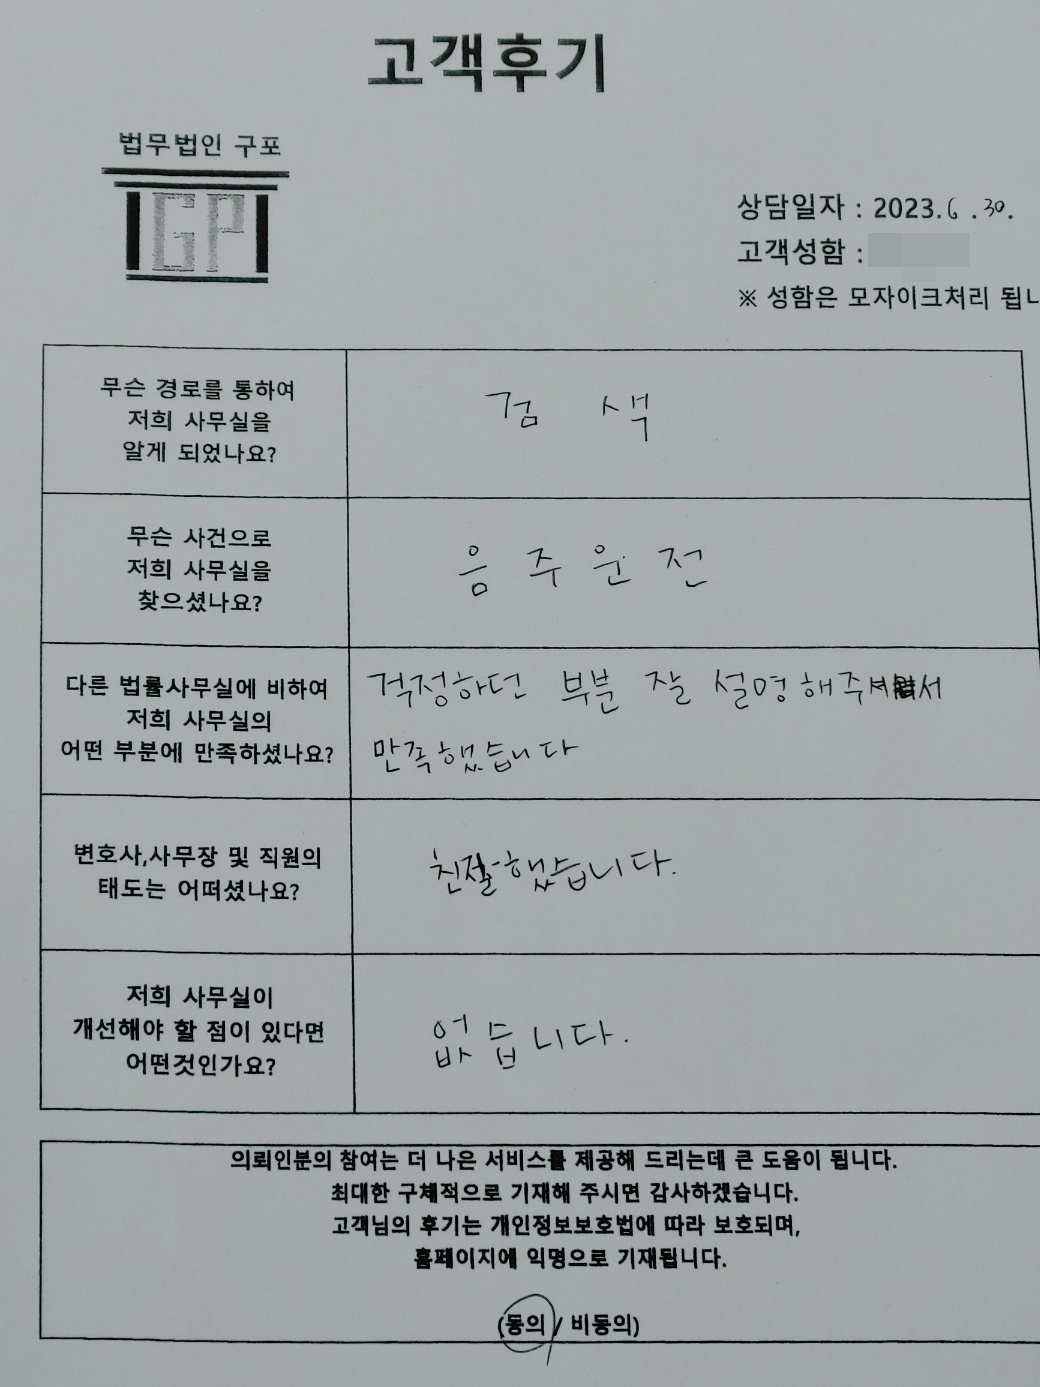 고객후기
법무법인 구포
GP
상담일자 : 2023. 6 . 30.
고객성함 :
※ 성함은 모자이크처리 됩니
무슨 경로를 통하여
저희 사무실을
알게 되었나요?
검색
무슨 사건으로
저희 사무실을
찾으셨나요?
음주운전
다른 법률사무실에 비하여
저희 사무실의
어떤 부분에 만족하셨나요?
걱정하던 부분 잘 설명해주셔서
만족했습니다
변호사,사무장 및 직원의
태도는 어떠셨나요?
친절했습니다.
저희 사무실이
개선해야 할 점이 있다면
어떤것인가요?
없습니다.
의뢰인분의 참여는 더 나은 서비스를 제공해 드리는데 큰 도움이 됩니다.
최대한 구체적으로 기재해 주시면 감사하겠습니다.
고객님의 후기는 개인정보보호법에 따라 보호되며,
홈페이지에 익명으로 기재됩니다.
(동의 / 비동의)